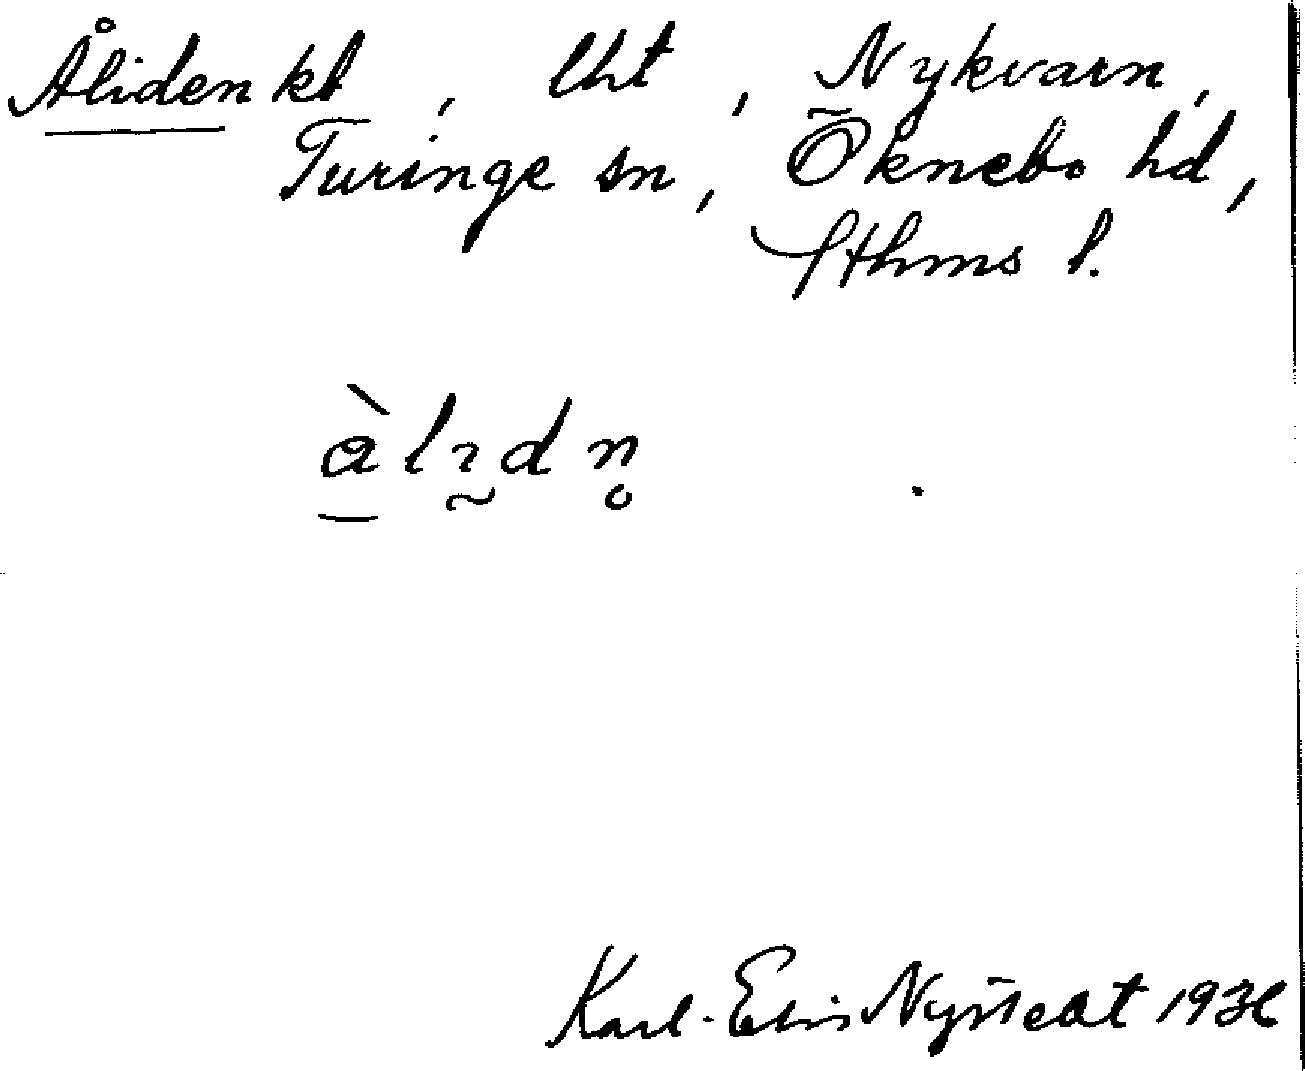 Åliden kt, lht, Nykvarn,
Turinge sn, Öknebo hd,
Sthms l.
Karl-Elis Nystedt 1936